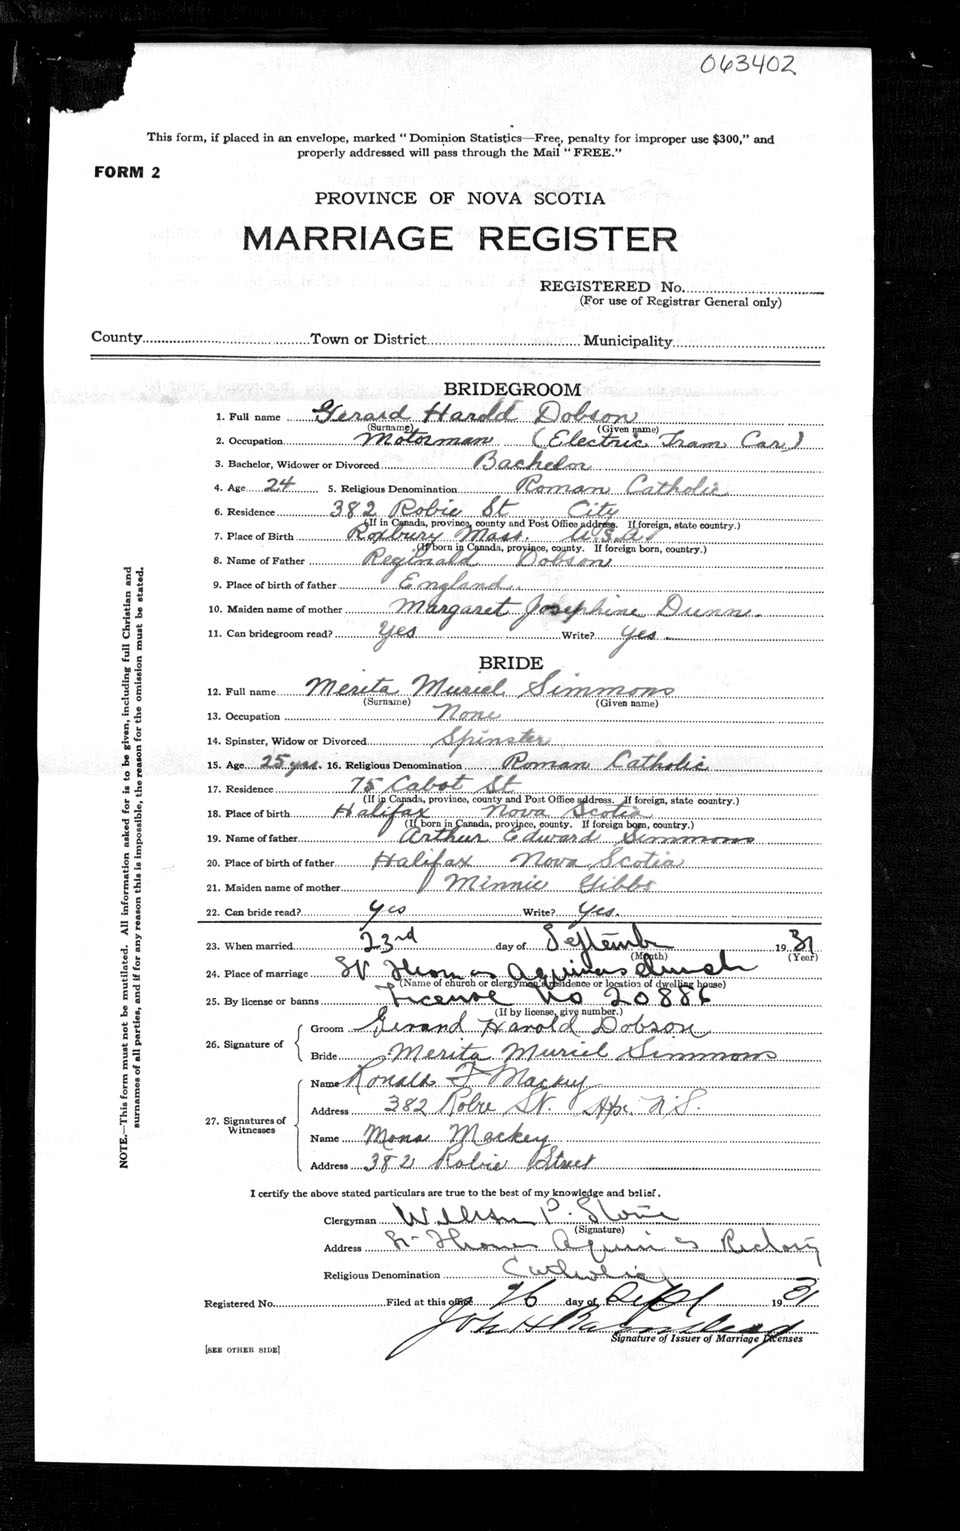 063402
This form, if placed in an envelope, marked "Dominion Statistics—Free, penalty for improper use $300," and
properly addressed will pass through the Mail "FREE."
FORM 2
PROVINCE OF NOVA SCOTIA
MARRIAGE REGISTER
REGISTERED No.
(For use of Registrar General only)
County Town or District Municipality
BRIDEGROOM
1. Full name Gerard Harold Dobson
(Surname) (Given name)
2. Occupation Motorman (Electric Tram Car)
3. Bachelor, Widower or Divorced Bachelor
4. Age 24 5. Religious Denomination Roman Catholic
6. Residence 382 Robie St City
(If in Canada, province, county and Post Office address. If foreign, state country.)
7. Place of Birth Roxbury Mass. U.S.A.
(If born in Canada, province, county. If foreign born, country.)
8. Name of Father Reginald Dobson
9. Place of birth of father England
10. Maiden name of mother Margaret Josephine Dunn.
11. Can bridegroom read? Yes Write? Yes
BRIDE
12. Full name Merita Muriel Simmons
(Surname) (Given name)
13. Occupation None
14. Spinster, Widow or Divorced Spinster
15. Age 25 yrs. 16. Religious Denomination Roman Catholic
17. Residence 75 Cabot St
(If in Canada, province, county and Post Office address. If foreign, state country.)
18. Place of birth Halifax Nova Scotia
(If born in Canada, province, county. If foreign born, country.)
19. Name of father Arthur Edward Simmons
20. Place of birth of father Halifax Nova Scotia
21. Maiden name of mother Minnie Gibbs
22. Can bride read? Yes Write? Yes.
23. When married 23rd day of September 1931
(Month) (Year)
24. Place of marriage St Thomas Aquinas Church
(Name of church or clergyman's residence or location of dwelling house)
25. By license or banns License No 20886
(If by license, give number.)
26. Signature of
Groom Gerard Harold Dobson
Bride Merita Muriel Simmons
27. Signatures of Witnesses
Name Ronald F Mackey
Address 382 Robie St. Hfx. N.S.
Name Mona Mackey
Address 382 Robie Street
I certify the above stated particulars are true to the best of my knowledge and belief.
Clergyman William P.
(Signature)
Address St Thomas Aquinas Rectory
Religious Denomination Catholic
Registered No. Filed at this office 26 day of Sept 1931
Signature of Issuer of Marriage Licenses
[SEE OTHER SIDE]
NOTE.—This form must not be mutilated. All information asked for is to be given, including full Christian and
surnames of all parties, and if for any reason this is impossible, the reason for the omission must be stated.